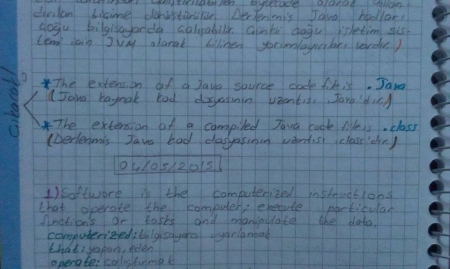 dirilen biçime dönüştürülür. Derlenmiş Java kodları
çoğu bilgisayarda çalışabilir. Çünkü çoğu işletim sis-
temi için JVM olarak bilinen yorumlayıcılar vardır.)
*The extension of a Java source code file is .Java
(Java kaynak kod dosyasının uzantısı Java'dır.)
*The extension of a compiled Java code file is .class
(Derlenmiş Java kod dosyasının uzantısı class'dır.)
04/03/2015
1) Software is the computerized instructions
that operate the computer; execute particular
functions or tasks and manipulate the data.
computerized: bilgisayara uyarlamak
that: yapan, eden
operate: çalıştırmak